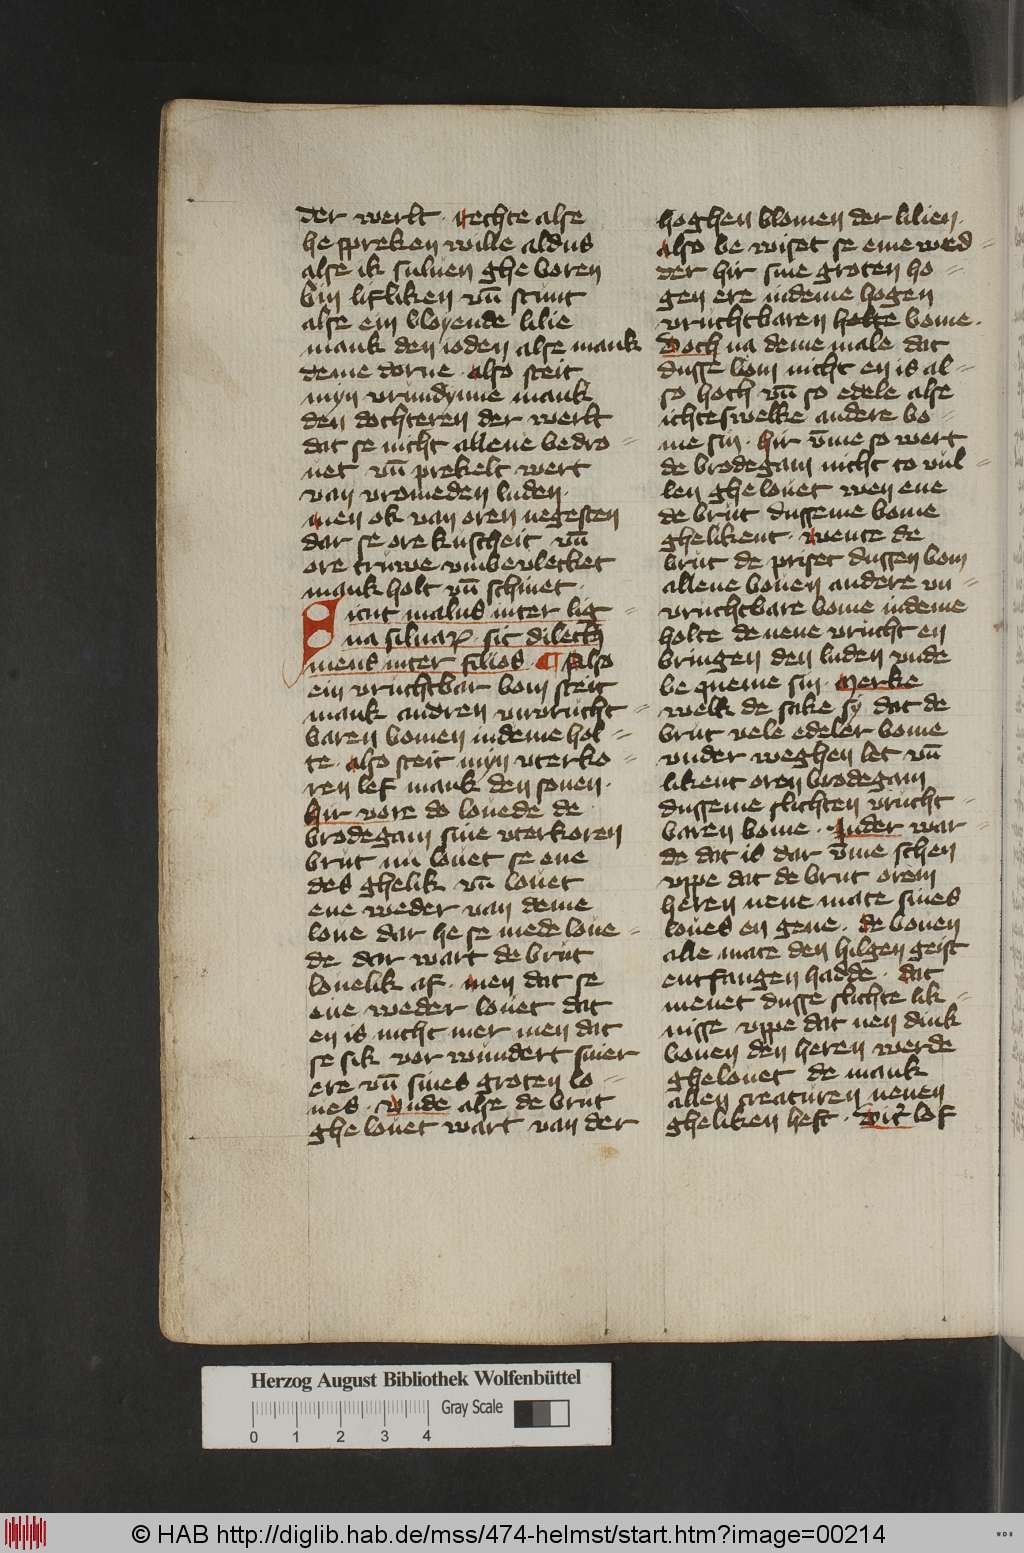 der werlt · rechte alse
he spreken wille aldus
alse ik suluen ghe boren
bin lifliken vn̄ stunt
alse ein bloyende lilie
mank den ioden alse mank
deme dorne · also steit
myn vrundynne mank
den dochteren der werlt
dat se nicht allene bedro=
uet vn̄ prekelt wert
van vromeden luden ·
men ok van oren negesten
dar se ore kuscheit vn̄
ore truwe vnbevlecket
mank holt vn̄ schinet ·
Sicut malus inter lig=
na siluaꝝ · sic dilectꝰ
meus inter filios · ¶ Also
ein vruchtbar bom steit
mank andren vnvrucht=
baren bomen indeme hol=
te · also steit myn vterko=
ren lef mank den sonen ·
hir vore do louede de
brodegam sine vterkoren
brut nu louet se ene
des ghelik vn̄ louet
ene weder van deme
loue dar he se mede loue=
de dar wart de brut
louelik af · men dat se
ene weder louet dat
en is nicht mer men dat
se sik vor wundert siner
ere vn̄ sines groten lo=
ues · vnde alse de brut
ghe louet wart van der
hoghen blomen der lilien ·
also be wiset se eme wed=
der hir sine groten ho=
gen ere indeme hogen
vruchtbaren holte bome ·
Doch na deme male dat
dusse bom nicht en is al=
so hoch vn̄ so edele alse
ichteswelke andere bo=
me sin · hir v̄me so wert
de brodegam nicht to vul=
len ghe louet wen ene
de brut dusseme bome
ghelikent · wente de
brut de priset dussen bom
allene bouen andere vn=
vruchtbare bome indeme
holte de nene vrucht en
bringen den luden vnde
be queme sin · Merke
welk de sake sy dat de
brut vele edeler bome
vnder weghen let vn̄
likent oren brodegam
dusseme slichten vrucht=
baren bome · Inder war=
de dat is dar v̄me schen
vppe dat de brut orem
heren nene mate sines
loues en geue · de bouen
alle mate den hilgen geist
entfangen hadde · dat
menet dusse slichte lik=
nisse vppe dat nen dink
bouen den heren werde
ghelouet de mank
allen creaturen nenen
gheliken heft · Dit lof
Herzog August Bibliothek Wolfenbüttel
Gray Scale
0 1 2 3 4
© HAB http://diglib.hab.de/mss/474-helmst/start.htm?image=00214